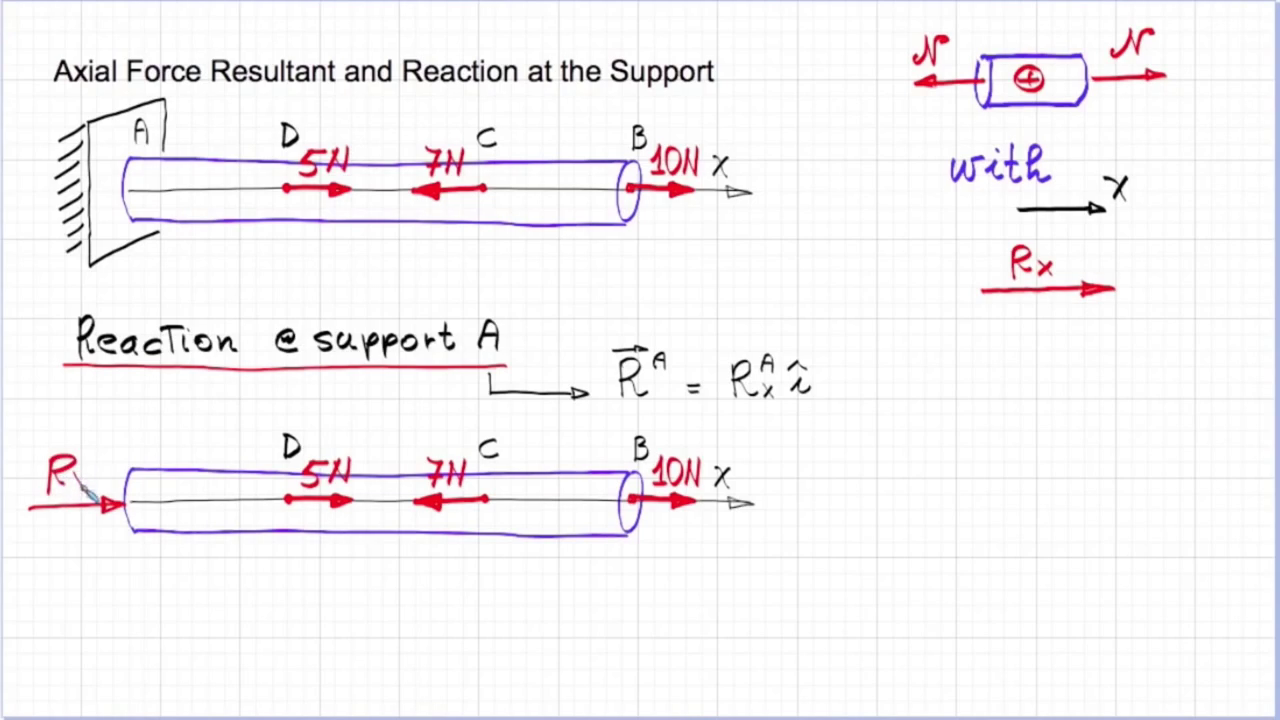 Axial Force Resultant and Reaction at the Support
N + N
A D 5N 7N C B 10N x
with
x
Rx
Reaction @ support A
R^A = R_x^A î
R D 5N 7N C B 10N x